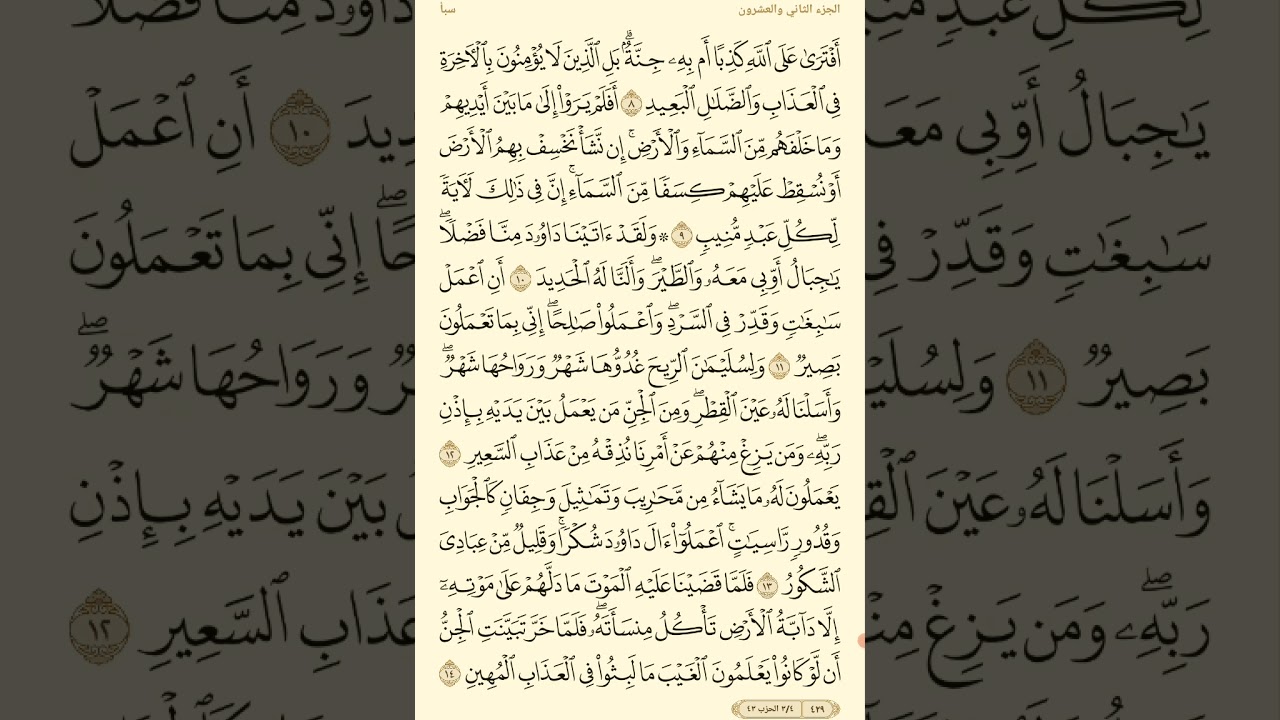 الجزء الثاني والعشرون سبأ
أَفْتَرَىٰ عَلَى ٱللَّهِ كَذِبًا أَم بِهِۦ جِنَّةٌۢ ۗ بَلِ ٱلَّذِينَ لَا يُؤْمِنُونَ بِٱلْأَخِرَةِ
فِى ٱلْعَذَابِ وَٱلضَّلَٰلِ ٱلْبَعِيدِ ٨ أَفَلَمْ يَرَوْا۟ إِلَىٰ مَا بَيْنَ أَيْدِيهِمْ
وَمَا خَلْفَهُم مِّنَ ٱلسَّمَآءِ وَٱلْأَرْضِ ۚ إِن نَّشَأْ نَخْسِفْ بِهِمُ ٱلْأَرْضَ
أَوْ نُسْقِطْ عَلَيْهِمْ كِسَفًا مِّنَ ٱلسَّمَآءِ ۚ إِنَّ فِى ذَٰلِكَ لَءَايَةً
لِّكُلِّ عَبْدٍ مُّنِيبٍ ٩ ۞ وَلَقَدْ ءَاتَيْنَا دَاوُۥدَ مِنَّا فَضْلًا ۖ
يَٰجِبَالُ أَوِّبِى مَعَهُۥ وَٱلطَّيْرَ ۖ وَأَلَنَّا لَهُ ٱلْحَدِيدَ ١٠ أَنِ ٱعْمَلْ
سَٰبِغَٰتٍ وَقَدِّرْ فِى ٱلسَّرْدِ ۖ وَٱعْمَلُوا۟ صَٰلِحًا ۖ إِنِّى بِمَا تَعْمَلُونَ
بَصِيرٌ ١١ وَلِسُلَيْمَٰنَ ٱلرِّيحَ غُدُوُّهَا شَهْرٌ وَرَوَاحُهَا شَهْرٌ ۖ
وَأَسَلْنَا لَهُۥ عَيْنَ ٱلْقِطْرِ ۖ وَمِنَ ٱلْجِنِّ مَن يَعْمَلُ بَيْنَ يَدَيْهِ بِإِذْنِ
رَبِّهِۦ ۖ وَمَن يَزِغْ مِنْهُمْ عَنْ أَمْرِنَا نُذِقْهُ مِنْ عَذَابِ ٱلسَّعِيرِ ١٢
يَعْمَلُونَ لَهُۥ مَا يَشَآءُ مِن مَّحَٰرِيبَ وَتَمَٰثِيلَ وَجِفَانٍ كَٱلْجَوَابِ
وَقُدُورٍ رَّاسِيَٰتٍ ۚ ٱعْمَلُوٓا۟ ءَالَ دَاوُۥدَ شُكْرًا ۚ وَقَلِيلٌ مِّنْ عِبَادِىَ
ٱلشَّكُورُ ١٣ فَلَمَّا قَضَيْنَا عَلَيْهِ ٱلْمَوْتَ مَا دَلَّهُمْ عَلَىٰ مَوْتِهِۦٓ
إِلَّا دَآبَّةُ ٱلْأَرْضِ تَأْكُلُ مِنسَأَتَهُۥ ۖ فَلَمَّا خَرَّ تَبَيَّنَتِ ٱلْجِنُّ
أَن لَّوْ كَانُوا۟ يَعْلَمُونَ ٱلْغَيْبَ مَا لَبِثُوا۟ فِى ٱلْعَذَابِ ٱلْمُهِينِ ١٤
٤٢٩ ٣/٤ الحزب ٤٣